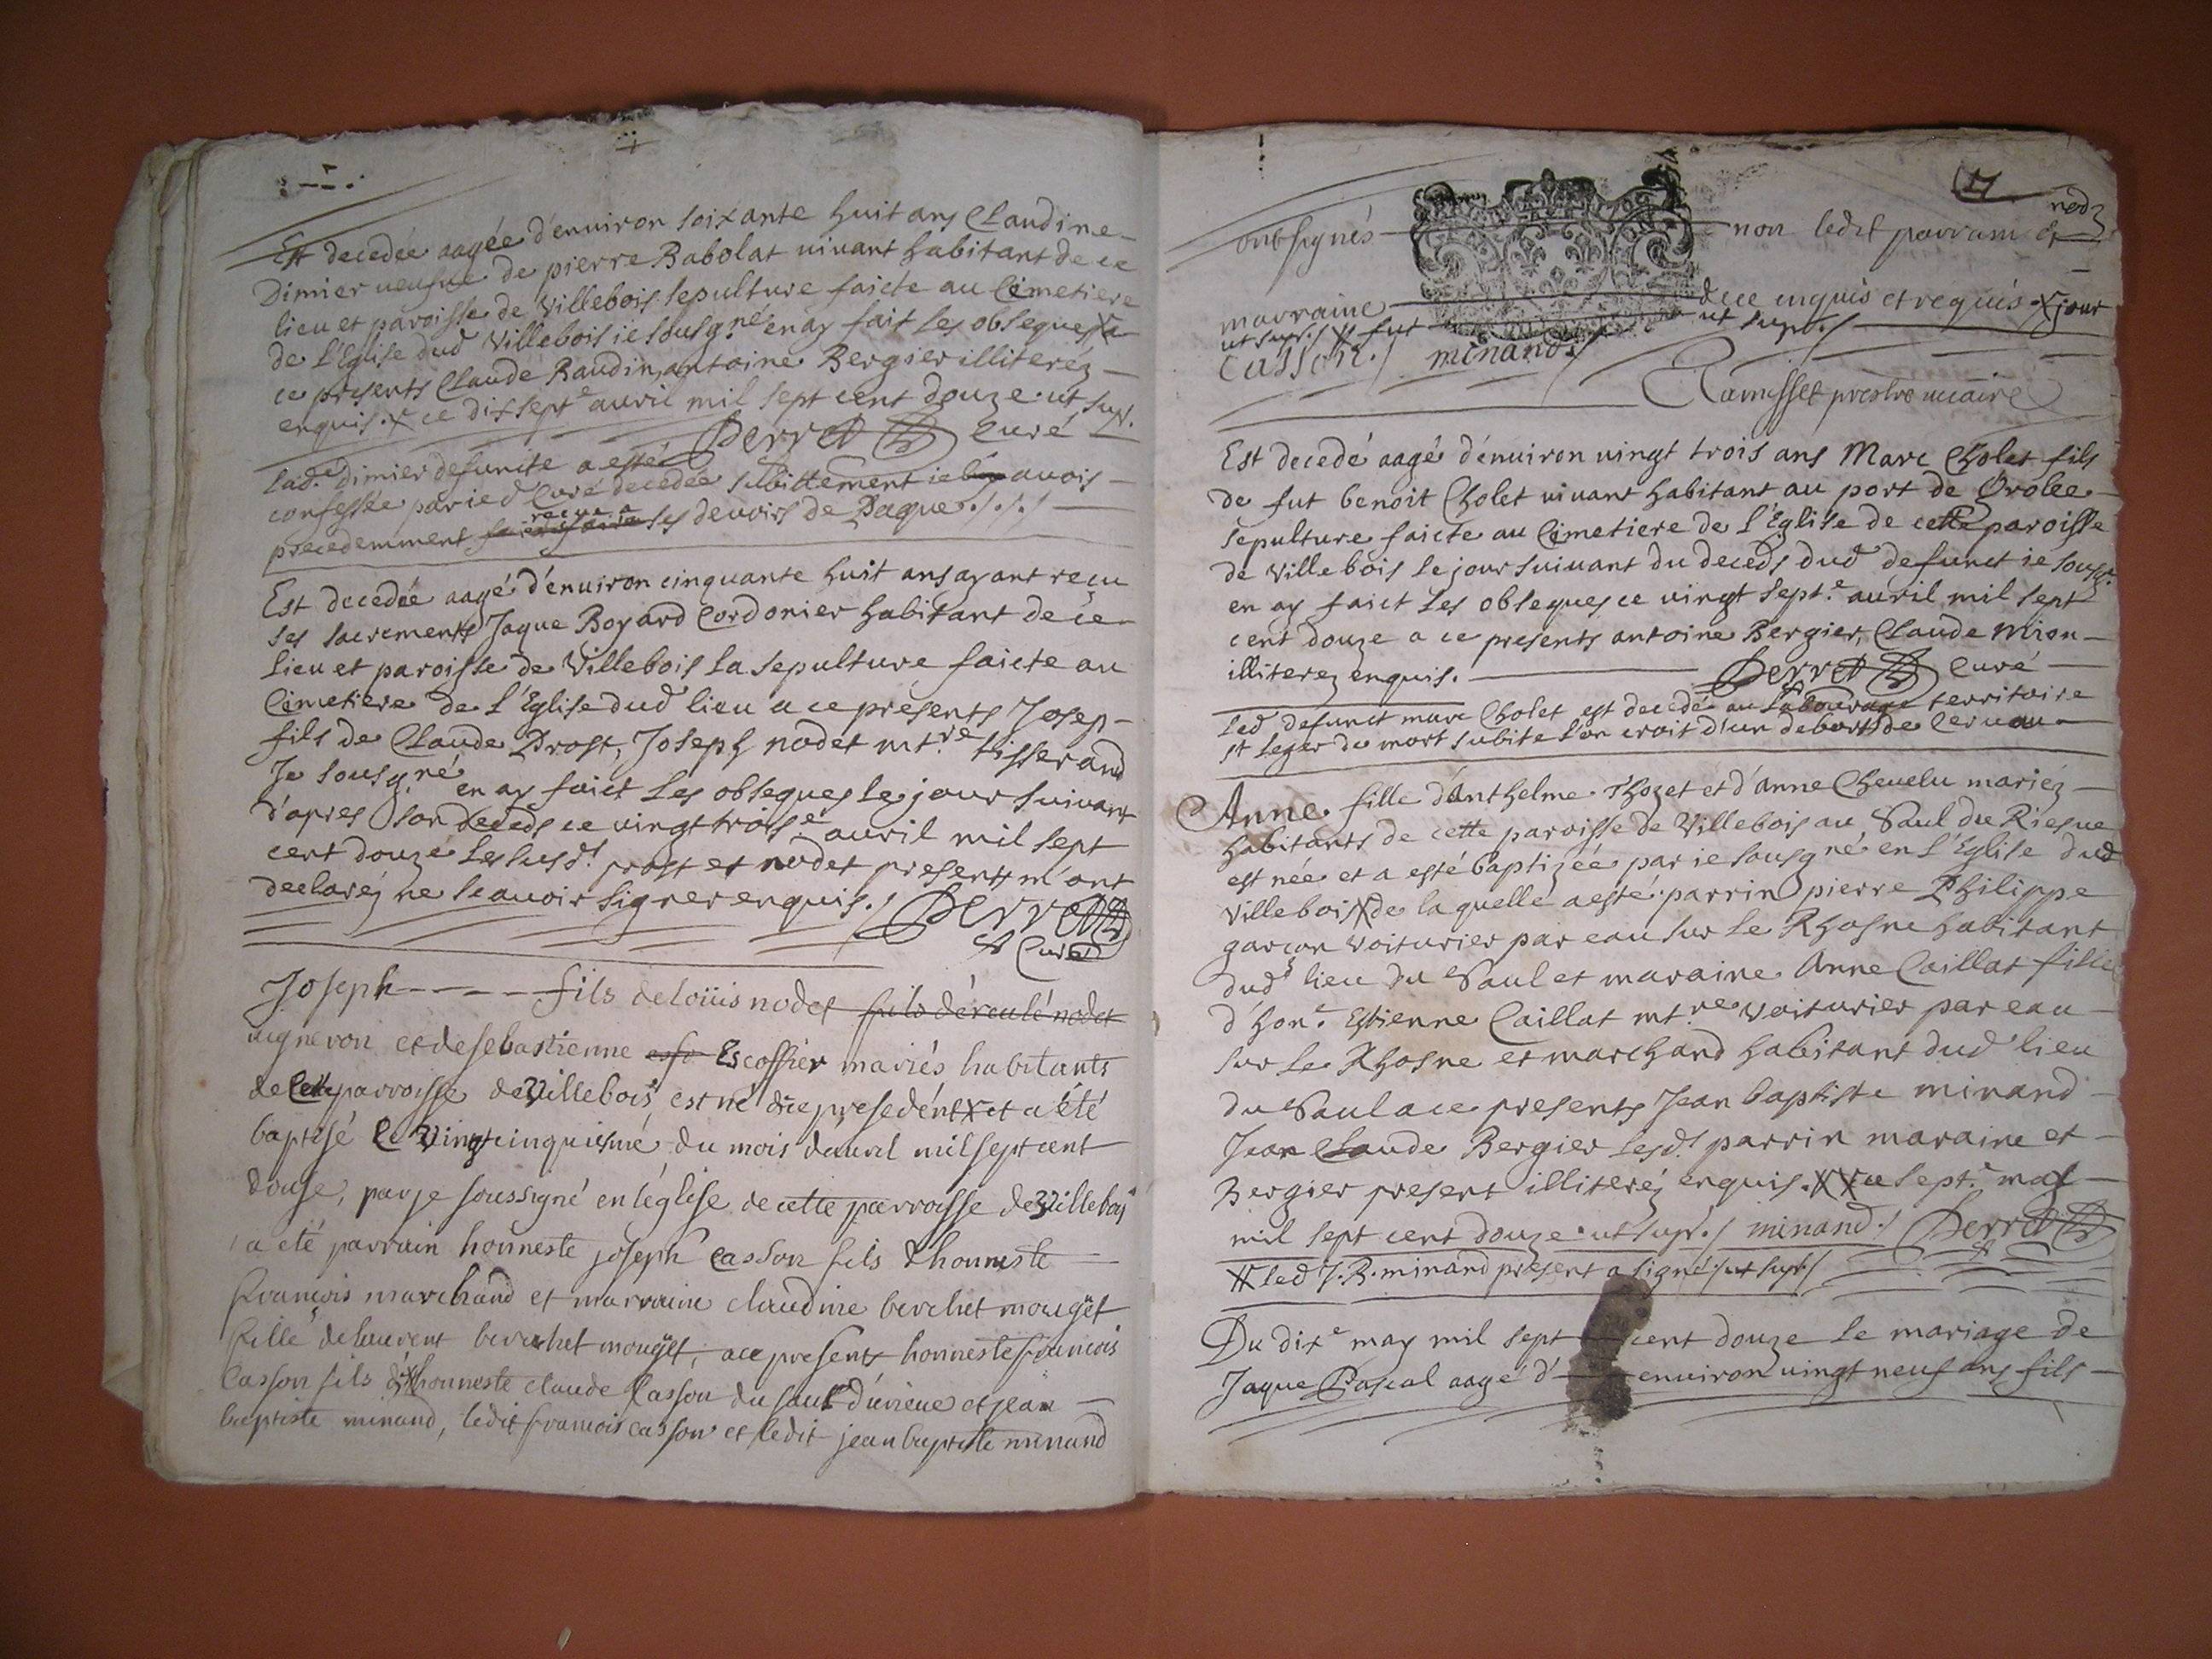 Est decedée aagée d'enuiron soixante huit ans Claudine
Dimier ueufue de pierre Babolat uiuant habitant de ce
lieu et paroisse de Villebois sepulture faicte au Cimetiere
de l'Eglise dud Villebois ie sousgné en ay fait les obseques x a
ce presents Claude Baudin, antoine Bergier illiteréz
enquis. x ce dix septe auril mil sept cent douze. ut supr.
Perret Curé
lad.e dimier defuncte a esté
confessée par ied Curé decedée subittement ie auois
precedemment receue a ses deuoirs de Paque ./././
Est decedée aagé d'enuiron cinquante huit ans ayant reçu
ses sacrements Jaque Boyard Cordonier habitant de ce
lieu et paroisse de Villebois la sepulture faicte au
Cimetiere de l'Eglise dud lieu a ce presents Josep
fils de Claude Prost, Joseph nodet mtre tisserand
Je sousgné en ay faict les obseques le jour suiuant
d'apres son deceds ce uingt troise auril mil sept
cent douze les susd.t prost et nodet presents m'ont
declaréz ne scauoir signer enquis./ Perret
Curé
Joseph - - - - fils de loüis nodet fils d'éreulé nodet
uigneron et de sebastienne esfo Escoffier mariés habitants
de cette parroisse de Villebois est né d precedent x et a été
baptisé le Vingtcinquiesme du mois dauril mil sept cent
douse, par je soussigné en léglise de cette parroisse de Villebois
a été parrain honneste joseph Casson fils d'honneste
françois marchand et marraine claudine berchet mougët
fille de laurent berchet mougët, a ce presents honneste francois
Casson fils d'honneste claude Casson du saut d'uirieue et jean
baptiste minand, ledit francois casson et ledit jean baptiste minand
nod
ont signés non ledit parrain et
marraine de ce enquis et requis. x jour
ut supr./ x fut ut supr./
casson./ minand./
Ramusset prestre uicaire
Est decedé aagé d'enuiron uingt trois ans Marc Cholet fils
de fut benoit Cholet uiuant habitant au port de Orolée
sepulture faicte au Cimetiere de l'Eglise de cette paroisse
de Villebois le jour suiuant du deceds dud defunct ie sousg.
en ay faict les obseques ce uingt sept.e auril mil sept
cent douze a ce presents antoine Bergier, Claude Mion
illiterez enquis. Perret Curé
Led defunct marc Cholet est decedé au Labourage territoire
st leger de mort subite l'on croit d'un debort de Cerueau
Anne fille d'Anthelme Thozet et d'Anne Cheuelu mariéz
habitants de cette paroisse de Villebois au Saul du Riesue
est née et a esté baptizée par ie sousgné en l'Eglise dud
Villebois x de laquelle a esté parrin pierre Philippe
garçon Voiturier par eau sur le Rhosne habitant
dud lieu du Saul et maraine Anne Caillat fille
d'hon.e Estienne Caillat mtre Voiturier par eau
sur le Rhosne et marchand habitant dud lieu
du Saul a ce presents Jean baptiste minand
Jean Claude Bergier lesd.t parrin maraine et
Bergier present illiteréz enquis. xx ce sept.e may
mil sept cent douze. ut supr./ minand./ Perret
xx led J. B. minand present a signé. ut supr./
Du dixe may mil sept cent douze le mariage de
Jaque Pascal aagé d' enuiron uingt neuf ans fils